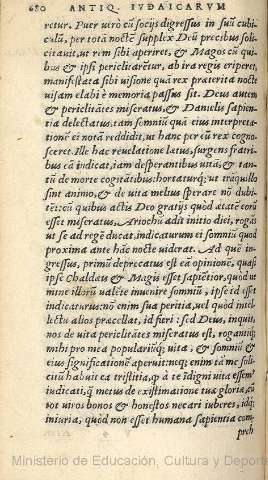 680 ANTIQ. IVDAICARVM
retur. Puer verò cũ socijs digressus in suũ cubi-
culum, per totã noctẽ supplex Deũ precibus solli-
citauit, ut rem sibi aperiret, & Magos cũ qui-
bus & ipsi periclitarẽtur, ab ira regis eriperet,
manifestata sibi uisione quã rex præterita nocte
uisam elabi è memoria passus sit. Deus autem
& periclitãtes miseratus, & Danielis sapien-
tia delectatus, tam somniũ quà eius interpreta-
tionẽ ei notã reddidit, ut hanc per eũ rex cogno-
sceret. Ille hac reuelatione lætus, surgens fratri-
bus eã indicat, iam desperantibus uitã, & tan-
tũ de morte cogitãtibus: hortaturq; ut trãquillo
sint animo, & de uita melius sperare nõ dubi-
tẽt: cũ quibus actis Deo gratijs quòd ætatẽ eorũ
esset miseratus, Ariochũ adit initio diei, rogãs
ut se ad regẽ ducat indicaturum ei somniũ quod
proxima ante hãc nocte uiderat. Ad quẽ in-
gressus, primũ deprecatus est eã opinionẽ, quasi
ipse Chaldæis & Magis esset sapiẽtior, quòd ut
mine illorũ ualẽte inuenire somniũ, ipse id esset
indicaturus: nõ enim sua peritia, uel quòd intel-
lectu alios præcellat, id fieri: sed Deus, inquit,
nos de uita periclitãtes miseratus est, rogantiq;
mihi pro mea populariũq; uita, & somniũ &
eius significationẽ aperuit: neq; enim tã me solli-
citũ habuit ea tristitia, q̃ à te ĩdigni uita essem9
iudicati, q̃ metus de existimatione tua gloria, cũ
tot uiros bonos & honestos necari iuberes, idq;
iniuria, quòd non esset humana sapientia com-
preh
Ministerio de Educación, Cultura y Deporte